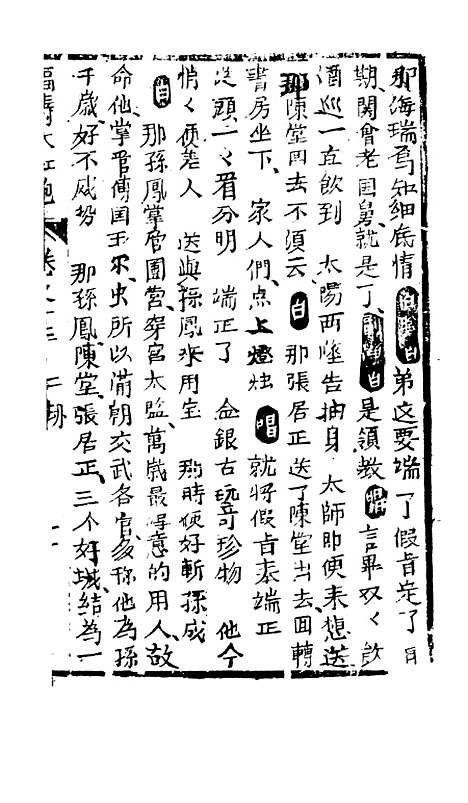 那海瑞焉知細底情 白 弟这要端了假旨定了日
期関會老国舅就是了 白 是領教 唱 言畢双々飲
酒巡一直飲到 太陽西墜告抽身 太師即便来想送
那陳堂囬去不須云 白 那張居正送了陳堂出去囬轉
書房坐下 家人們点上燈烛 唱 就將假旨来端正
従頭一々看分明 端正了 金銀古玩竒珍物 他今
悄々便差人 送與孫鳳来用宝 那時便好斬孫成
白 那孫鳳掌管圍营穿宮太监萬歳最得意的用人故
命他掌管傳国玉 所以满朝文武各官多称他為孫
千歳好不威势 那孫鳳陳堂張居正三个奸 結為一
福壽大紅袍 卷之十三